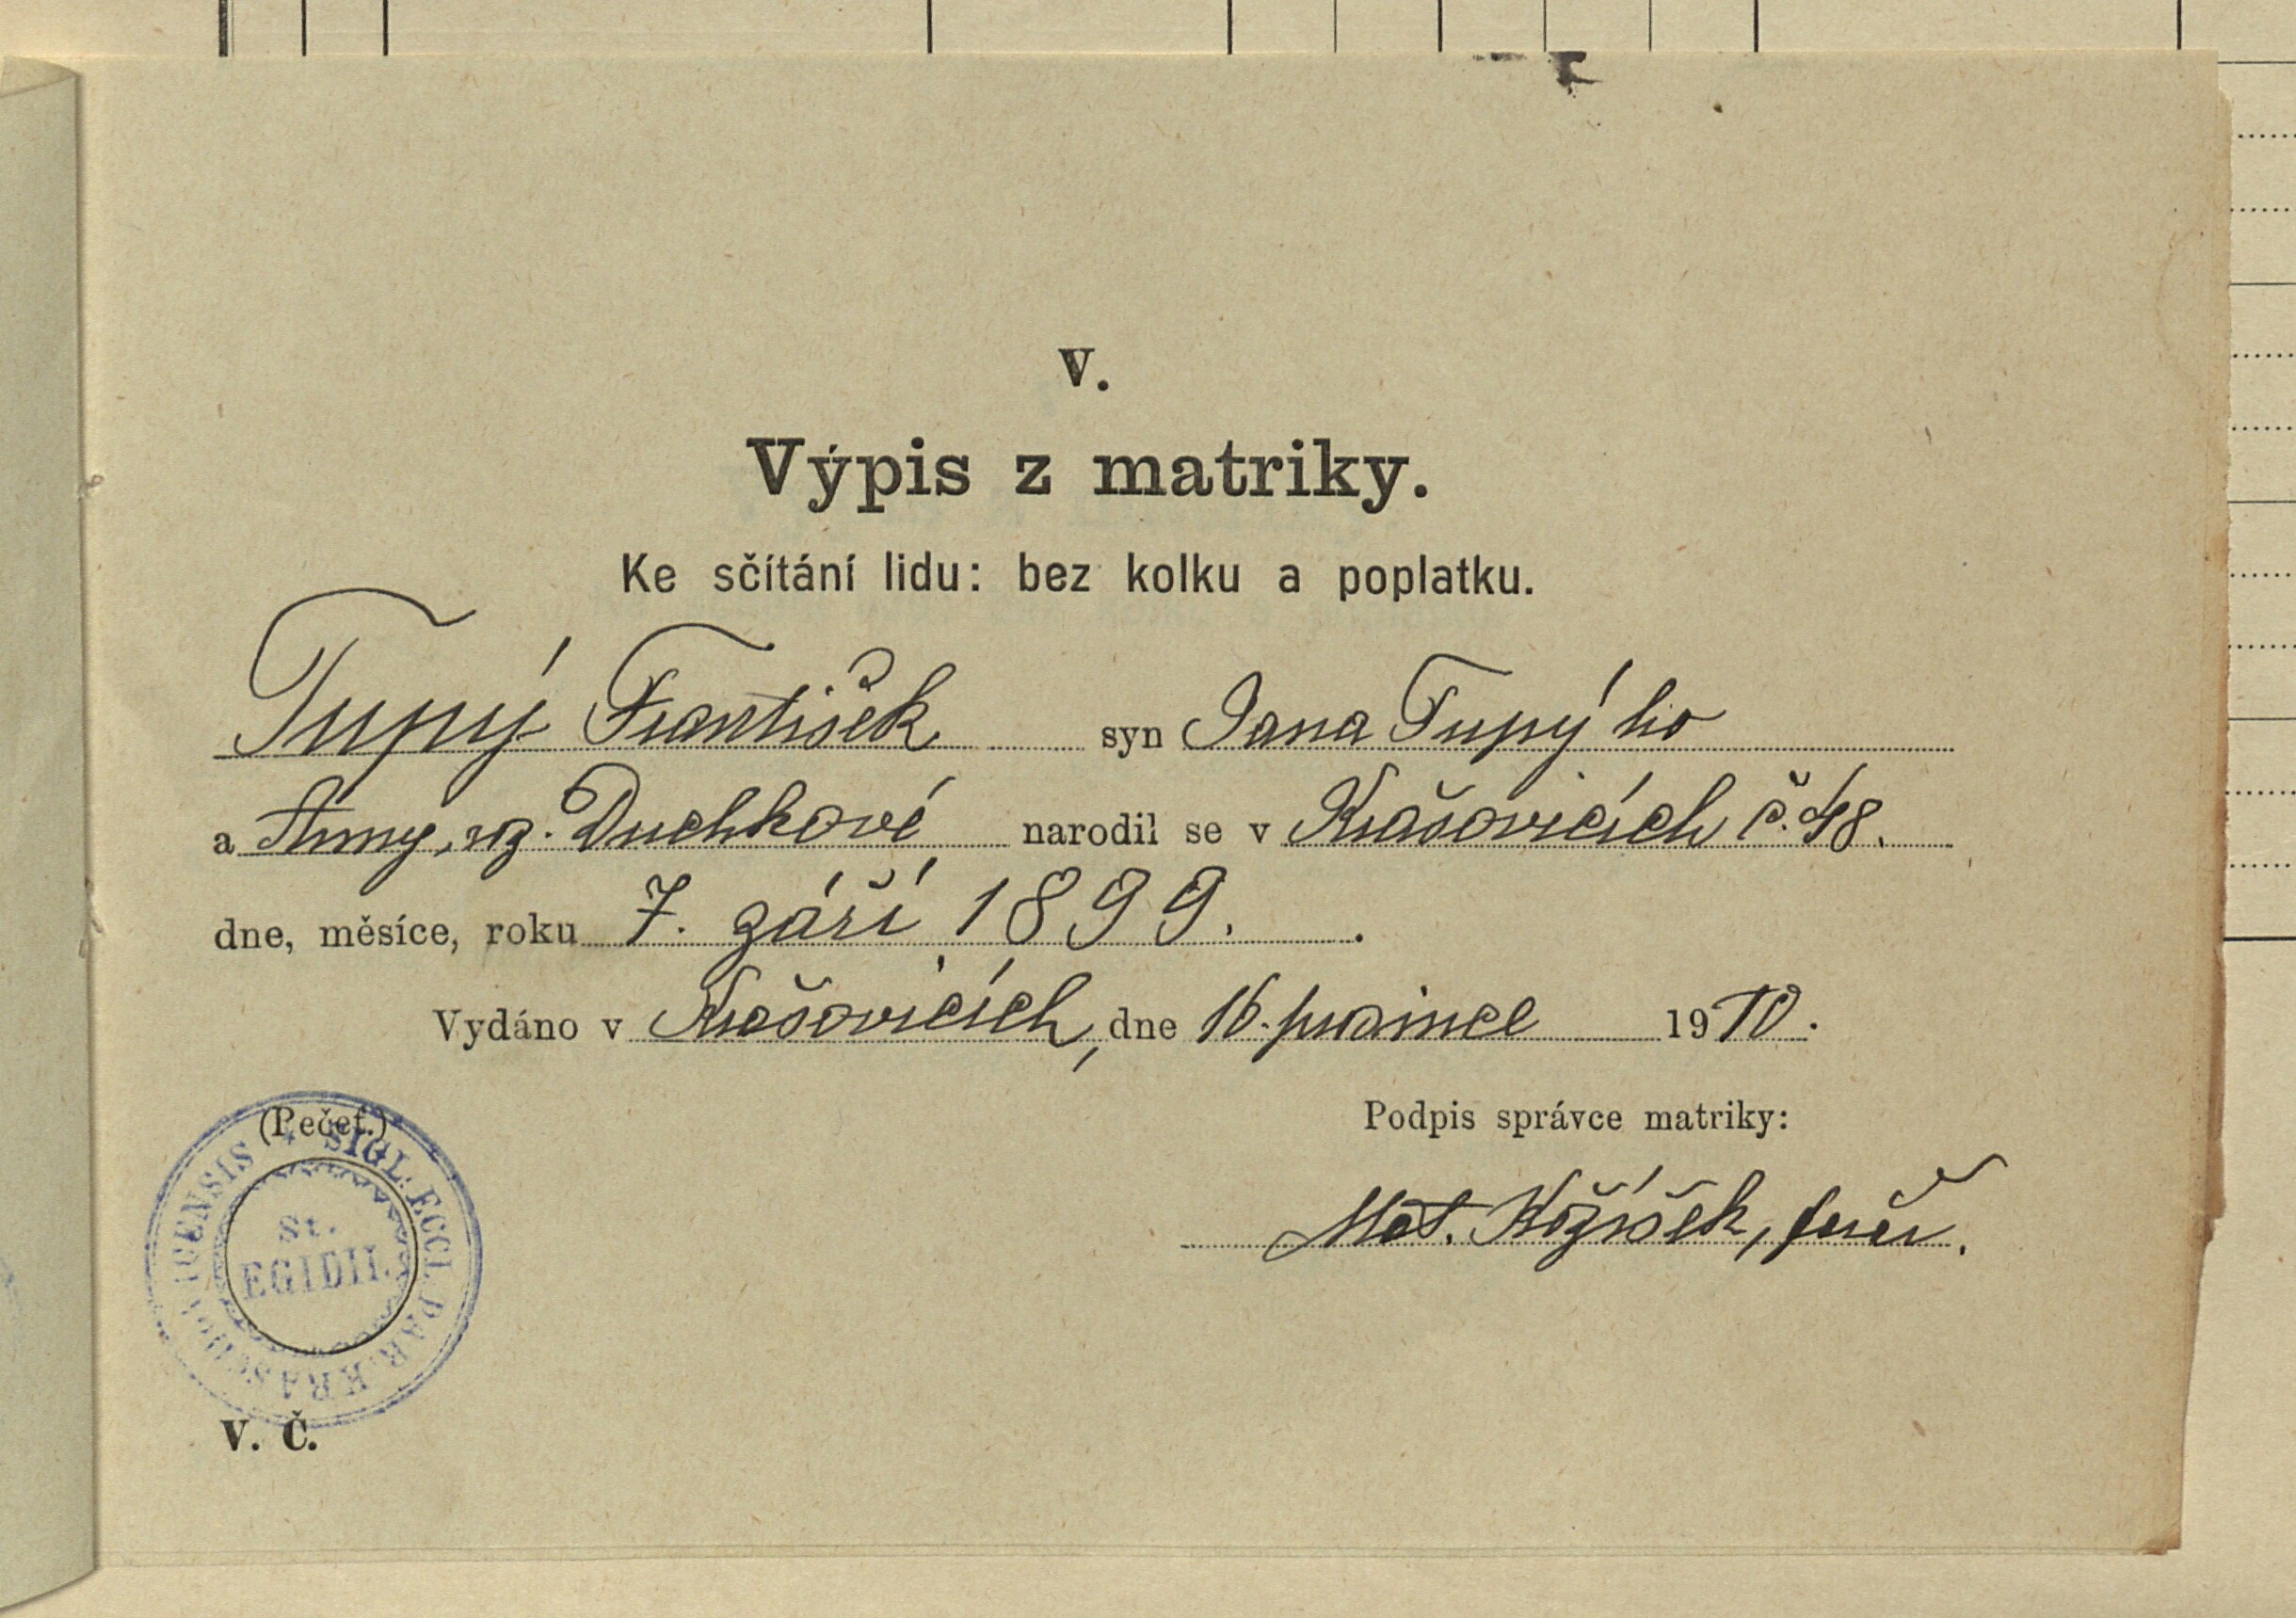 V.
Výpis z matriky.
Ke sčítání lidu: bez kolku a poplatku.
Tupý František syn Jana Tupýho
a Anny, roz. Duchkové narodil se v Krašovicích č. 48.
dne, měsíce, roku 7. září 1899.
Vydáno v Krašovicích, dne 16. prosince 1910.
(Pečeť.)
Podpis správce matriky:
SIGL. ECCL. PAR. KRASCHOVICENSIS
St.
EGIDII.
Mat. Kožíšek, farář.
V. Č.